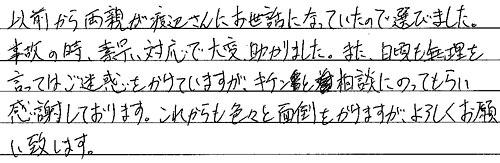 以前から両親が渡辺さんにお世話になっていたので選びました。
事故の時、素早い対応で大変助かりました。また、日頃も無理を
言ってはご迷惑をかけていますが、キチンと相談にのってもらい
感謝しております。これからも色々と面倒をかけますが、よろしくお願
い致します。